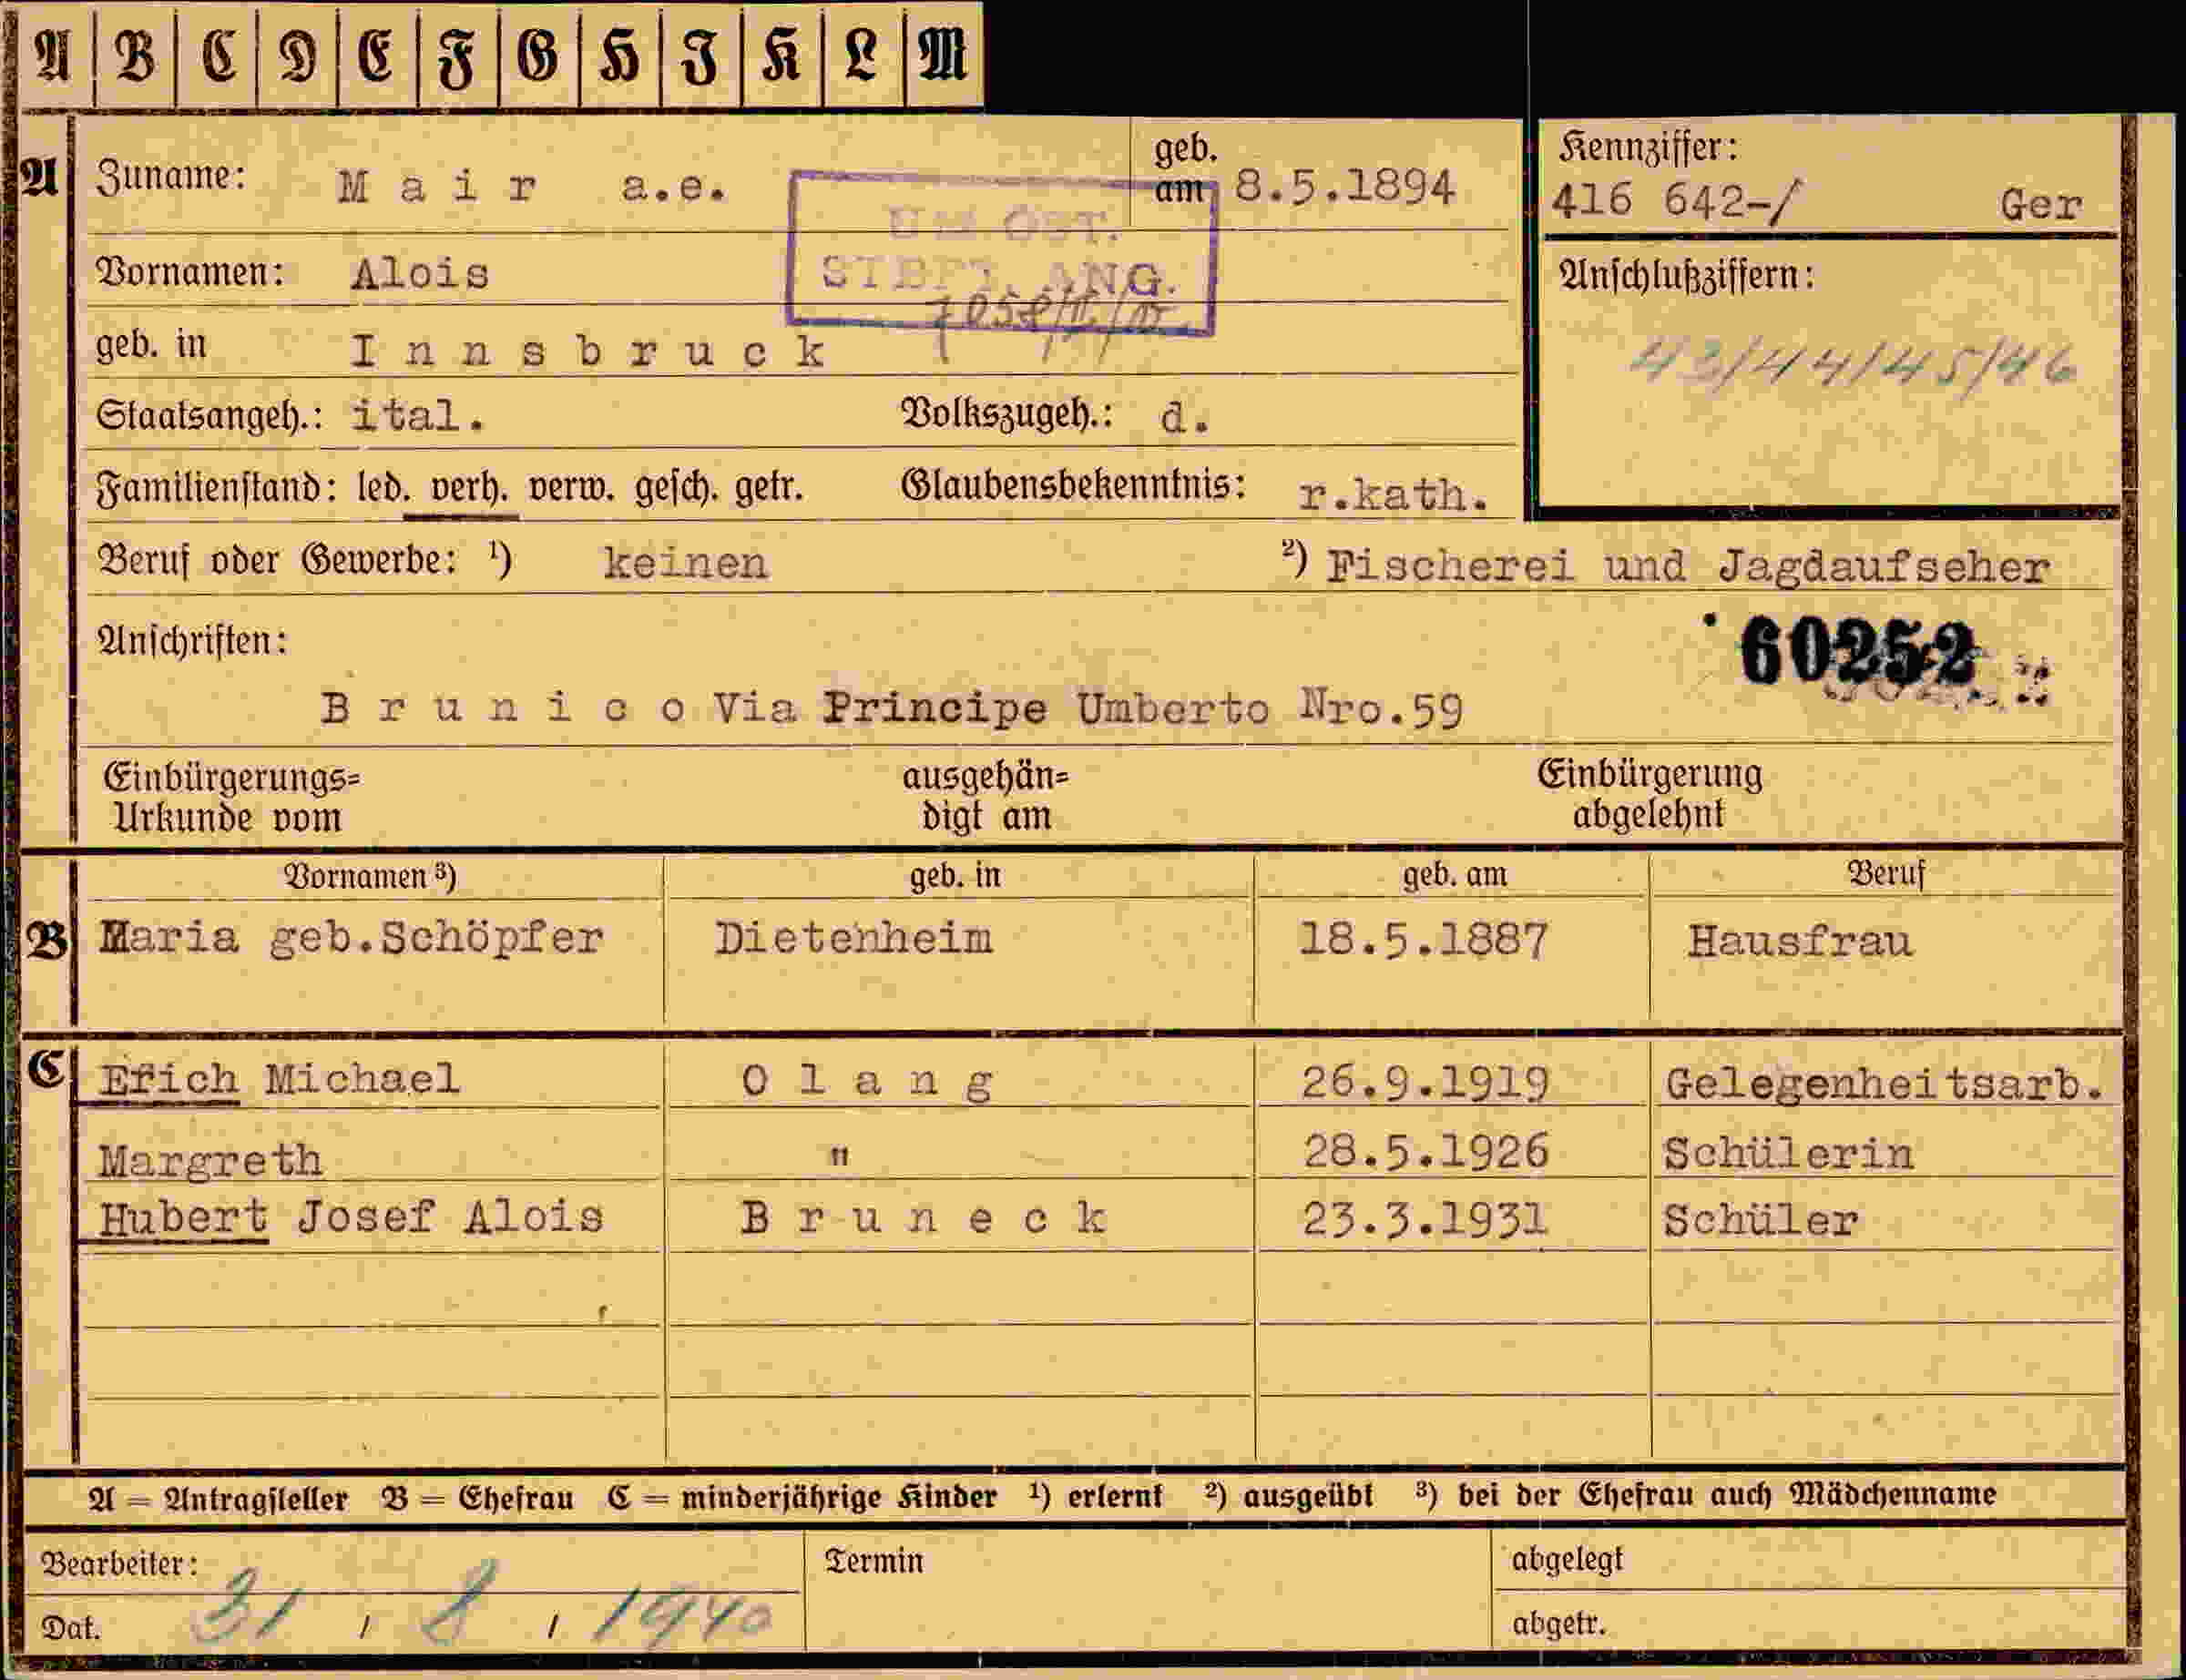 A B C D E F G H I K L M
A Zuname: Mair a.e. geb. am 8.5.1894 Kennziffer:
416 642-/ Ger
Vornamen: Alois ANG. Anschlußziffern:
43/44/45/46
geb. in Innsbruck
Staatsangeh.: ital. Volkszugeh.: d.
Familienstand: led. verh. verw. gesch. getr. Glaubensbekenntnis: r.kath.
Beruf oder Gewerbe: ¹) keinen ²) Fischerei und Jagdaufseher
Anschriften:
60252
Brunico Via Principe Umberto Nro.59
Einbürgerungs= ausgehän= Einbürgerung
Urkunde vom digt am abgelehnt
Vornamen ³) geb. in geb. am Beruf
B Maria geb.Schöpfer Dietenheim 18.5.1887 Hausfrau
C Erich Michael Olang 26.9.1919 Gelegenheitsarb.
Margreth " 28.5.1926 Schülerin
Hubert Josef Alois Bruneck 23.3.1931 Schüler
A = Antragsteller B = Ehefrau C = minderjährige Kinder ¹) erlernt ²) ausgeübt ³) bei der Ehefrau auch Mädchenname
Bearbeiter: Termin abgelegt
Dat. 31 / 8 / 1940 abgetr.